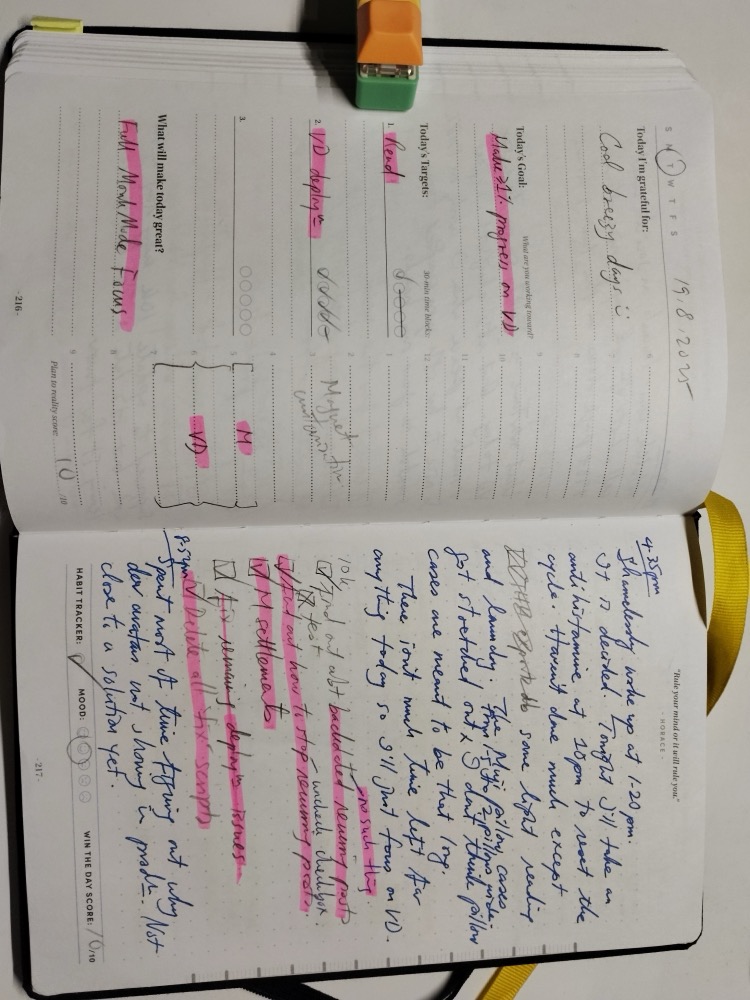 S M T W T F S
19.8.2025
Today I'm grateful for:
Cool breezy days
Today's Goal: What are you working toward?
Make >1% progress on VD
Today's Targets: 30 min time blocks:
1. Read
2. VD deploy
3.
What will make today great?
Full Monk Mode Focus
- 216 -
6
7
8
9
10
11
12
1
2
3
4
5 M
6
VD
7
8
9
Plan to reality score: 10 /10
"Rule your mind or it will rule you."
- HORACE -
4.35pm
Shamelessly woke up at 1-20 pm.
It is decided. Tonight I'll take an
antihistamine at 10pm to reset the
cycle. Haven't done much except
some light reading
and laundry. The Muji pillow cases
got stretched out & I don't think pillow
cases are meant to be that long.
There isn't much time left for
anything today so I'll just focus on VD.
no such thing
Find out abt backdated recurring posts
test
- uncheck checkbox.
Find out how to stop recurring posts
M settlements
Fix remaining deploy issues
Delete all fix scripts
8.52pm
Spent most of time figuring out why
dev avatars not showing in prod. Not
close to a solution yet.
HABIT TRACKER: MOOD: WIN THE DAY SCORE: 10/10
- 217 -